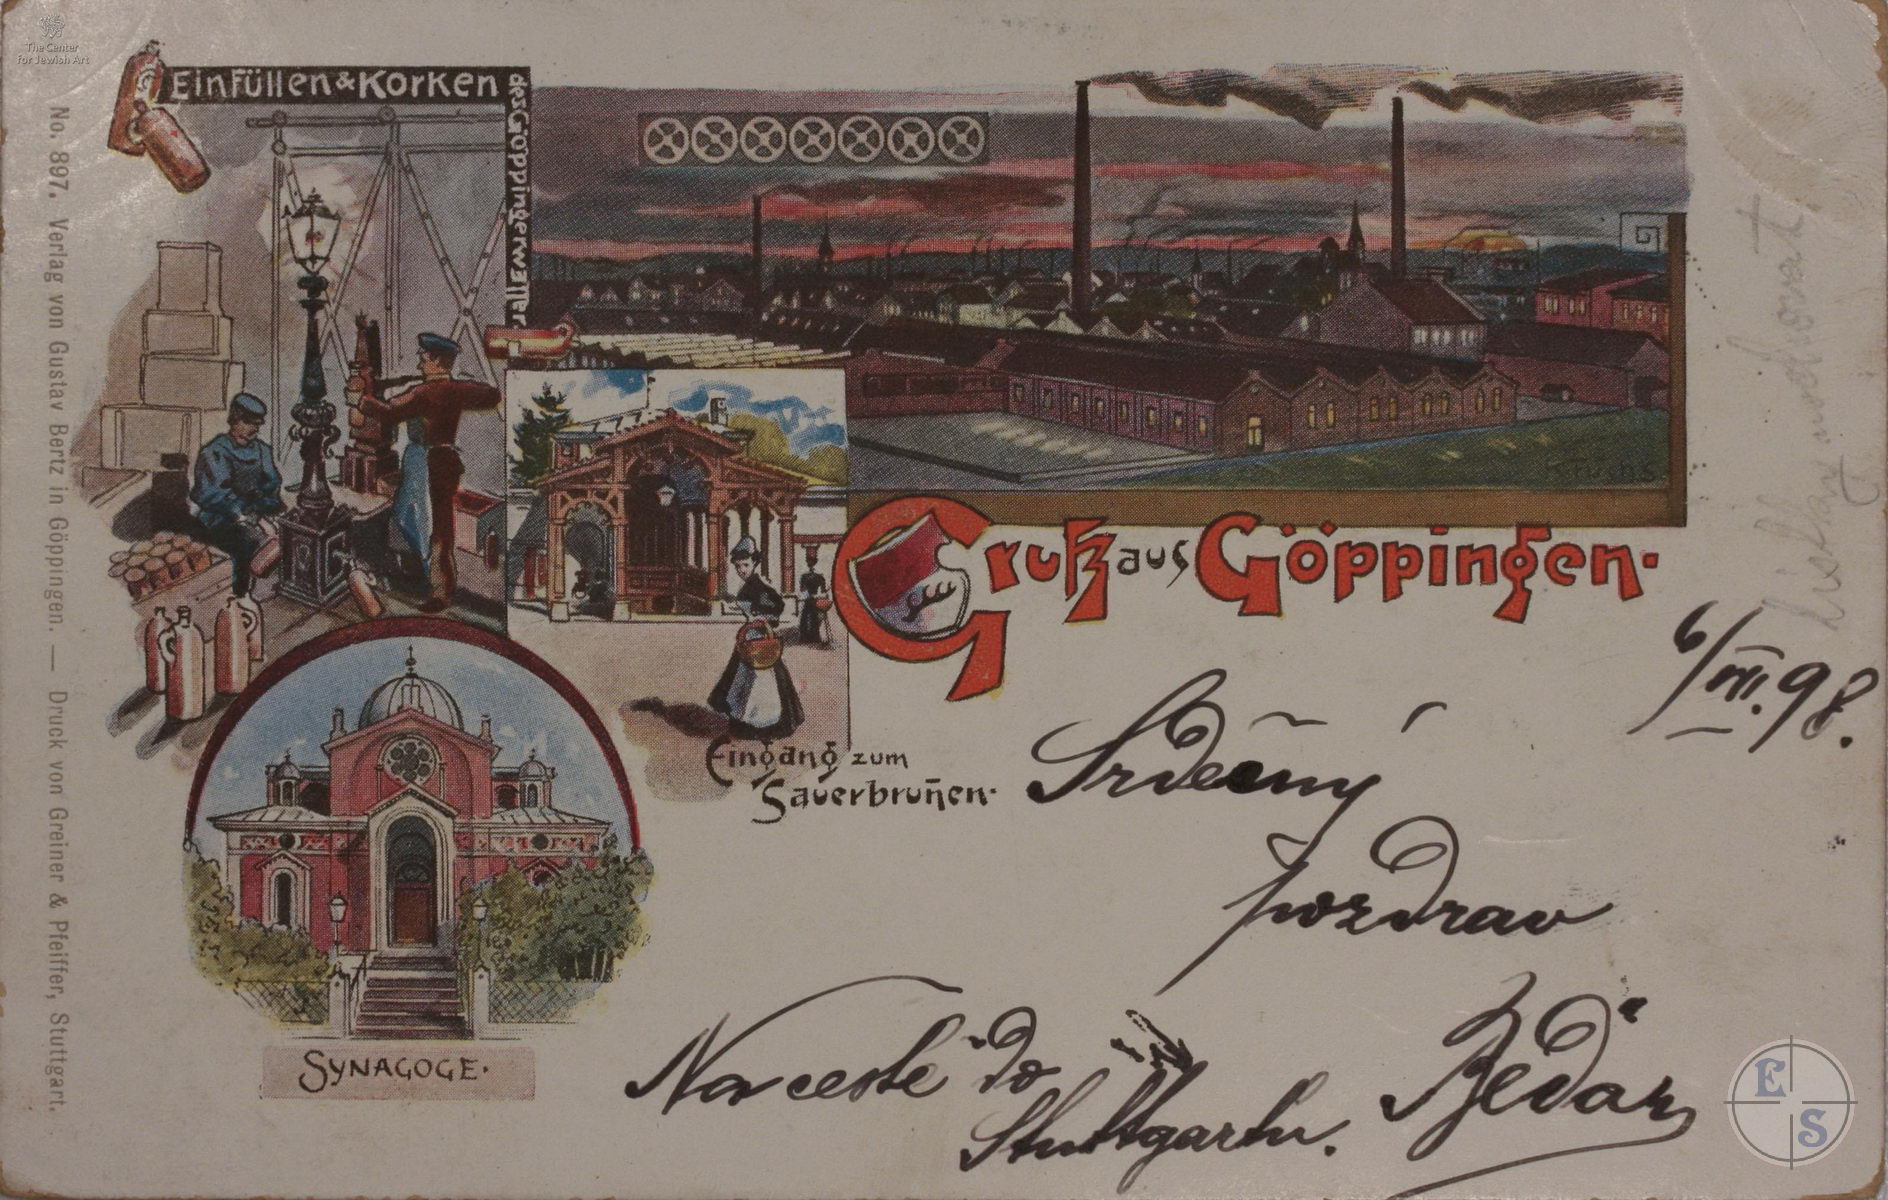 The Center
for Jewish Art
Einfüllen & Korken
des Göppingerwassers
No. 897. Verlag von Gustav Bertz in Göppingen. — Druck von Greiner & Pfeiffer, Stuttgart.
R. Fuchs.
Gruß aus Göppingen.
Eingang zum
Sauerbruñen.
Synagoge.
6/VII. 98.
Srdečný
pozdrav
Na cestě do
Stuttgartu.
E
S